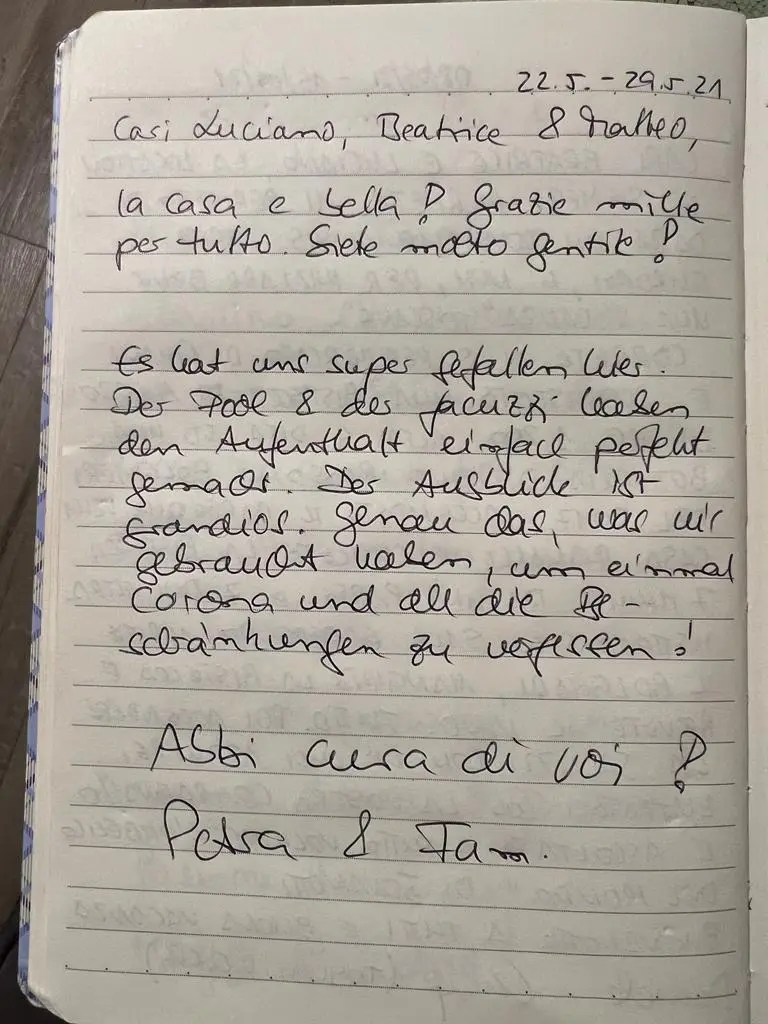 22.5. - 29.5.21
Cari Luciano, Beatrice & Matteo,
la casa e bella! Grazie mille
per tutto. Siete molto gentile!
Es hat uns super gefallen hier.
Der Pool & der Jacuzzi haben
den Aufenthalt einfach perfekt
gemacht. Der Ausblick ist
grandios. Genau das, was wir
gebraucht haben, um einmal
Corona und all die Be-
schränkungen zu vergessen!
Abbi cura di voi!
Petra & Fam.